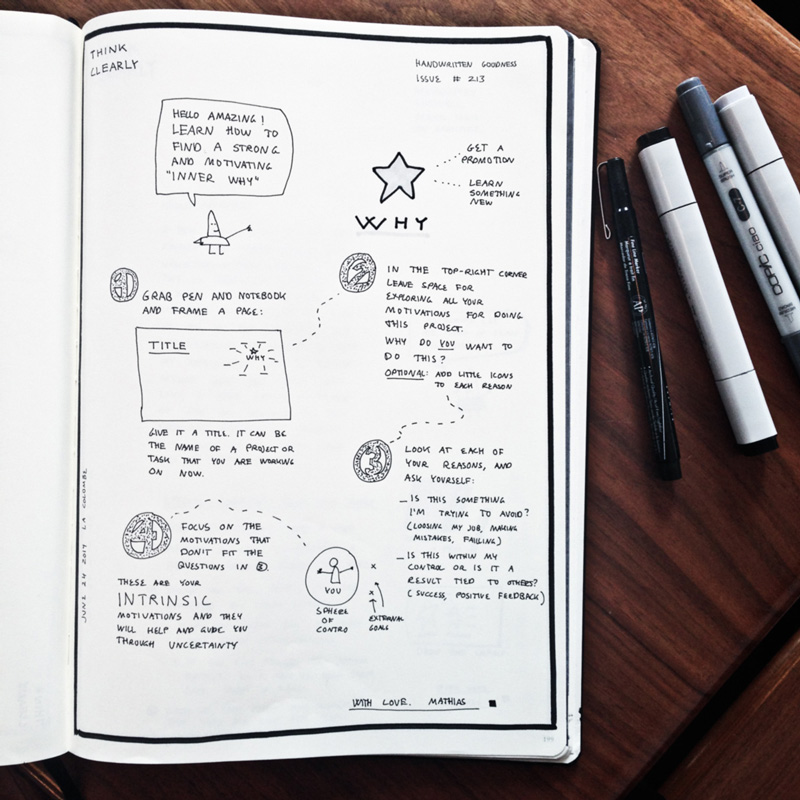 THINK
CLEARLY
HANDWRITTEN GOODNESS
ISSUE # 213
HELLO AMAZING!
LEARN HOW TO
FIND A STRONG
AND MOTIVATING
"INNER WHY"
GET A
PROMOTION
LEARN
SOMETHING
NEW
WHY
1
GRAB PEN AND NOTEBOOK
AND FRAME A PAGE:
TITLE
WHY
GIVE IT A TITLE. IT CAN BE
THE NAME OF A PROJECT OR
TASK THAT YOU ARE WORKING
ON NOW.
2
IN THE TOP-RIGHT CORNER
LEAVE SPACE FOR
EXPLORING ALL YOUR
MOTIVATIONS FOR DOING
THIS PROJECT.
WHY DO YOU WANT TO
DO THIS?
OPTIONAL: ADD LITTLE ICONS
TO EACH REASON
3
LOOK AT EACH OF
YOUR REASONS, AND
ASK YOURSELF:
— IS THIS SOMETHING
I'M TRYING TO AVOID?
(LOOSING MY JOB, MAKING
MISTAKES, FAILING)
— IS THIS WITHIN MY
CONTROL OR IS IT A
RESULT TIED TO OTHERS?
(SUCCESS, POSITIVE FEEDBACK)
4
FOCUS ON THE
MOTIVATIONS THAT
DON'T FIT THE
QUESTIONS IN ③.
THESE ARE YOUR
INTRINSIC
MOTIVATIONS AND THEY
WILL HELP AND GUIDE YOU
THROUGH UNCERTAINTY
YOU
SPHERE
OF
CONTRO
x
x
EXTERNAL
GOALS
WITH LOVE. MATHIAS
JUNE 24 2014 LA COLOMBE
COPIC ciao